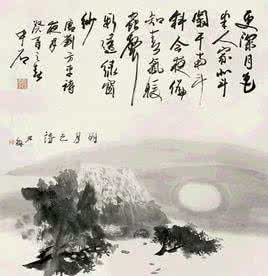 更深月色
半人家北斗
闌干南斗
斜今夜偏
知春氣暖
蟲聲
新透綠窗
紗
唐劉方平詩
夜月
癸酉之春
中石